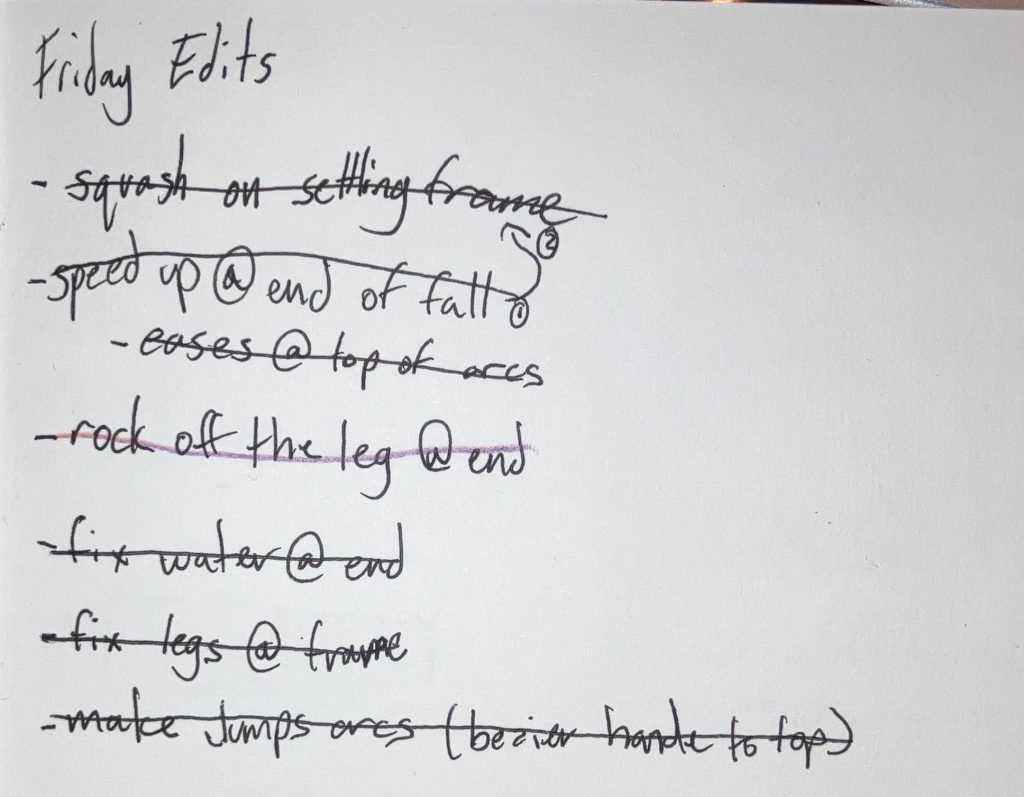 Friday Edits
- squash on settling frame
②
- speed up @ end of fall ①
- eases @ top of arcs
- rock off the leg @ end
- fix water @ end
- fix legs @ frame
- make jumps arcs (bezier handle to top)